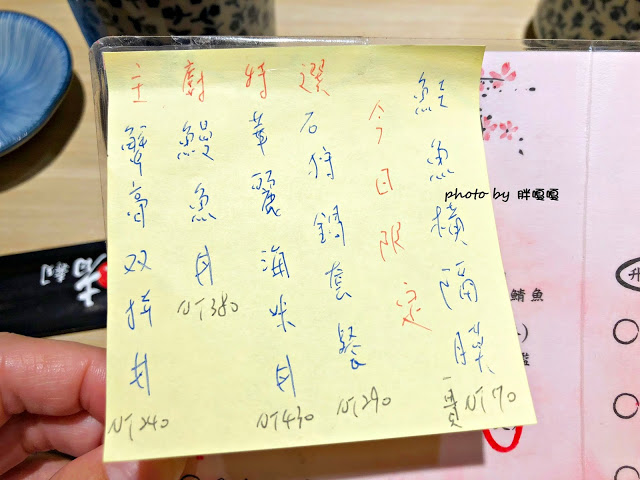 主廚特選
蟹膏双拼丼
NT240
鰻魚丼
NT380
華麗海味丼
NT430
石狩鍋套餐
NT290
今日限定
鮭魚橫隔膜
一貫 NT70
photo by 胖嘎嘎
鯖魚
升